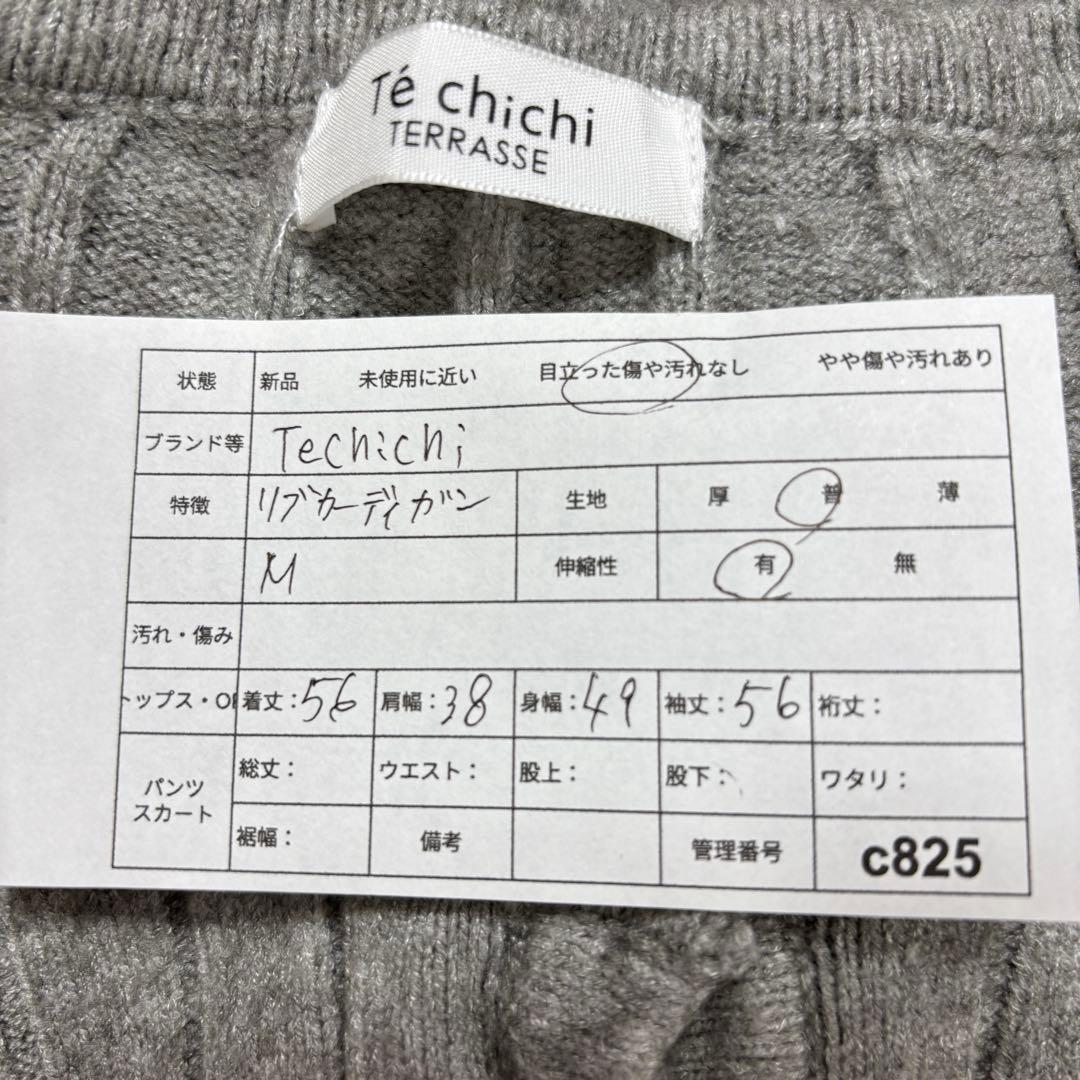 Té chichi
TERRASSE
状態 新品 未使用に近い 目立った傷や汚れなし やや傷や汚れあり
ブランド等 Techichi
特徴 リブカーディガン 生地 厚 普 薄
M 伸縮性 有 無
汚れ・傷み
トップス・O 着丈:56 肩幅:38 身幅:49 袖丈:56 裄丈:
パンツ スカート
総丈: ウエスト: 股上: 股下: ワタリ:
裾幅: 備考 管理番号 c825